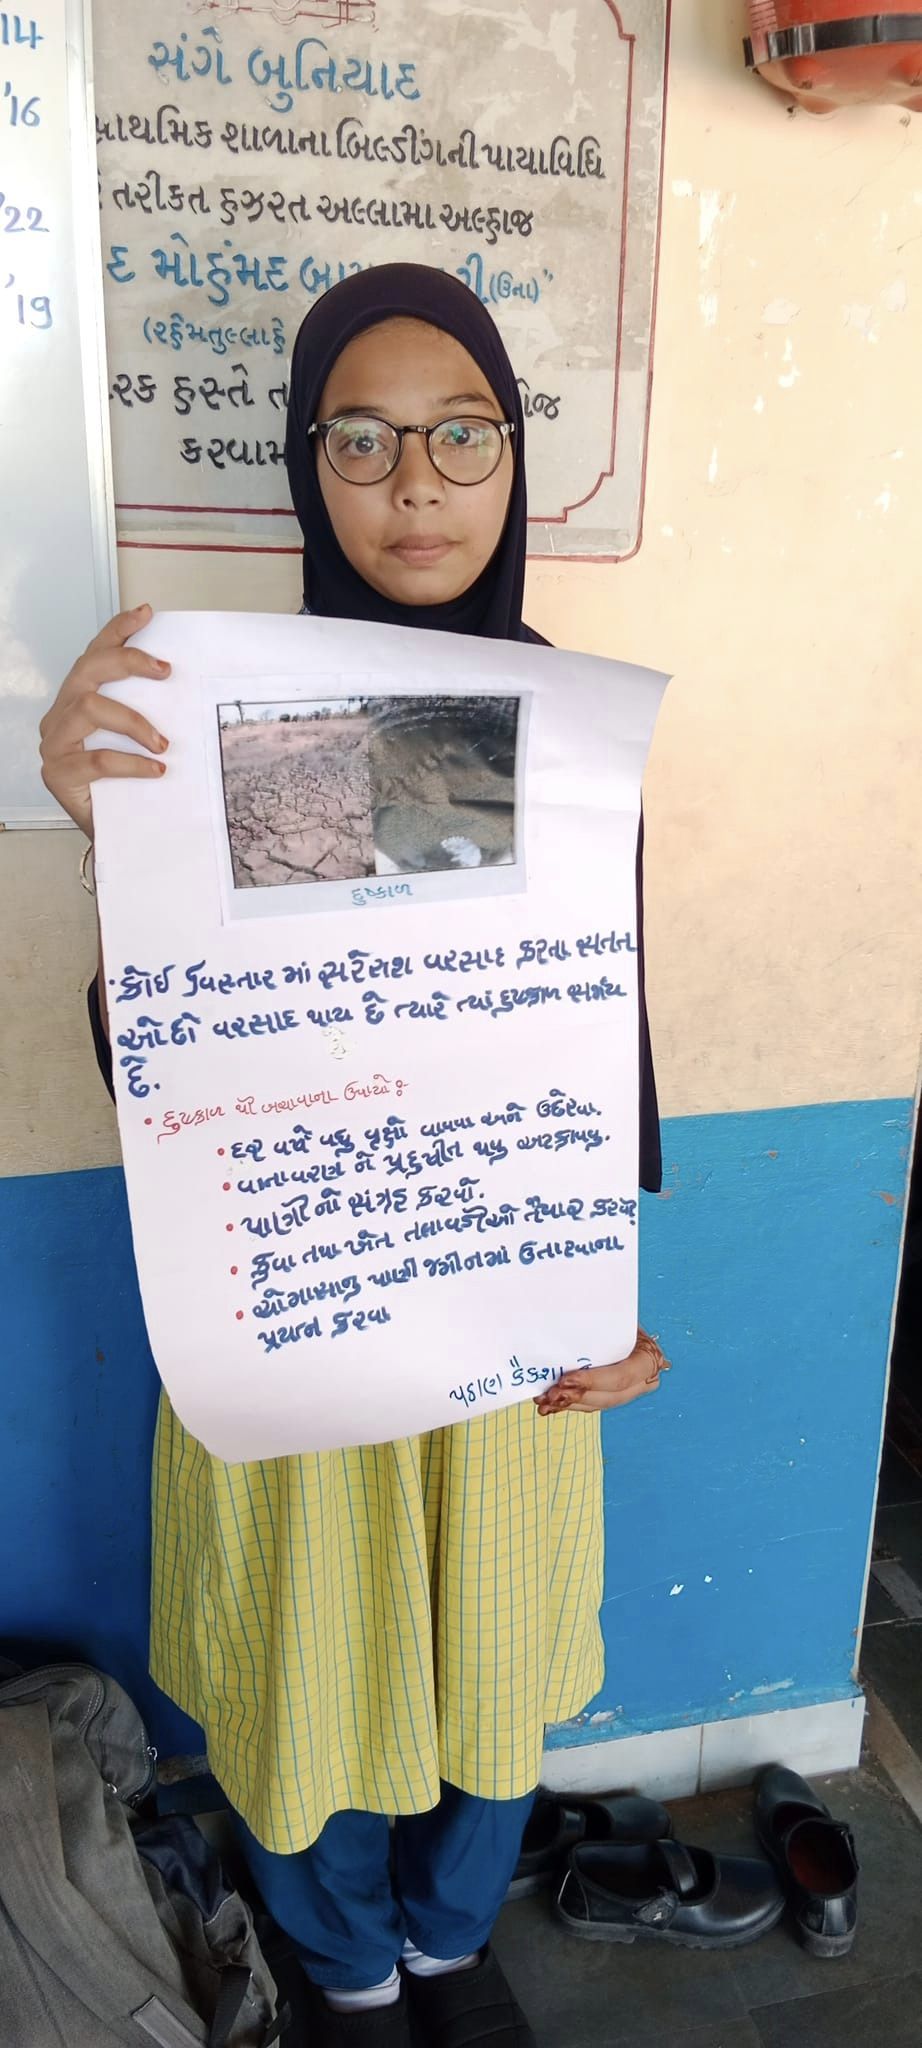 14
'16
'22
'19
સંગે બુનિયાદ
પ્રાથમિક શાળાના બિલ્ડીંગની પાયાવિધિ
તરીકત હઝરત અલ્લામા અલ્હાજ
દ મોહંમદ બા રી (ઉના)"
(રહેમતુલ્લાહે
રક હસ્તે તા ોજ
કરવામ
દુષ્કાળ
• કોઈ વિસ્તાર માં સરેરાશ વરસાદ કરતા સતત
ઓછો વરસાદ થાય છે ત્યારે ત્યાં દુષ્કાળ સર્જાય
છે.
• દુષ્કાળ થી બચાવાના ઉપાયો:
• દર વર્ષે વધુ વૃક્ષો વાવવા અને ઉછેરવા.
• વાતાવરણ ને પ્રદુષીત થવુ અટકાવવુ.
• પાણીનો સંગ્રહ કરવો.
• કુવા તથા ખેત તલાવડીઓ તૈયાર કરવી
• ચોમાસાનુ પાણી જમીનમાં ઉતારવાના
પ્રયત્ન કરવા
પઠાણ કૈકશા